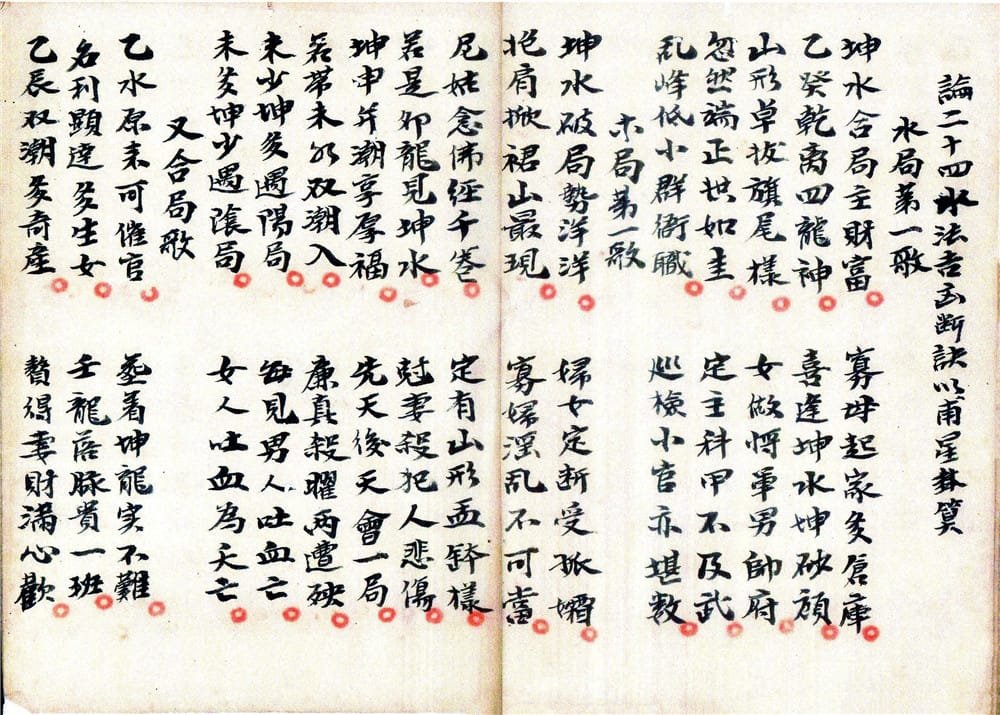 論二十四水法吉凶断訣以甫星算
水局第一歌
坤水合局主財富 寡母起家多倉庫
乙癸乾离四龍神 喜逢坤水坤砂顧
山形卓拔旗尾樣 女做将軍男帥府
忽然端正共如圭 定主科甲不及武
乱峰低小群衙職 巡檢小官亦堪数
局第一歌
坤水破局勢洋洋 婦女定断受孤孀
抱肩掀裙山最現 寡婦淫乱不可當
尼姑念佛經千卷 定有山形盂鉢樣
若是卯龍見坤水 尅妻殺犯人悲傷
坤申并潮享厚福 先天後天會一局
若帶未水双潮入 廉真殺曜两遭殃
未少坤多遇陽局 每見男人吐血亡
未多坤少遇陰局 女人吐血為夭亡
又合局歌
乙水原来可催官 着坤龍实不難
名利顯達多生女 壬龍落脉貴一班
乙辰双潮多奇產 贅得妻財滿心歡